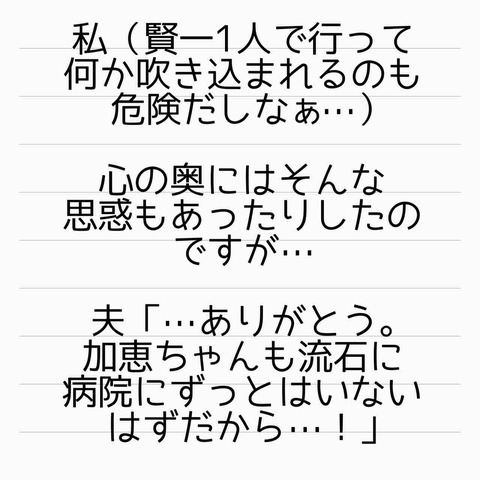 私（賢一1人で行って
何か吹き込まれるのも
危険だしなぁ…）
心の奥にはそんな
思惑もあったりしたの
ですが…
夫「…ありがとう。
加恵ちゃんも流石に
病院にずっとはいない
はずだから…！」